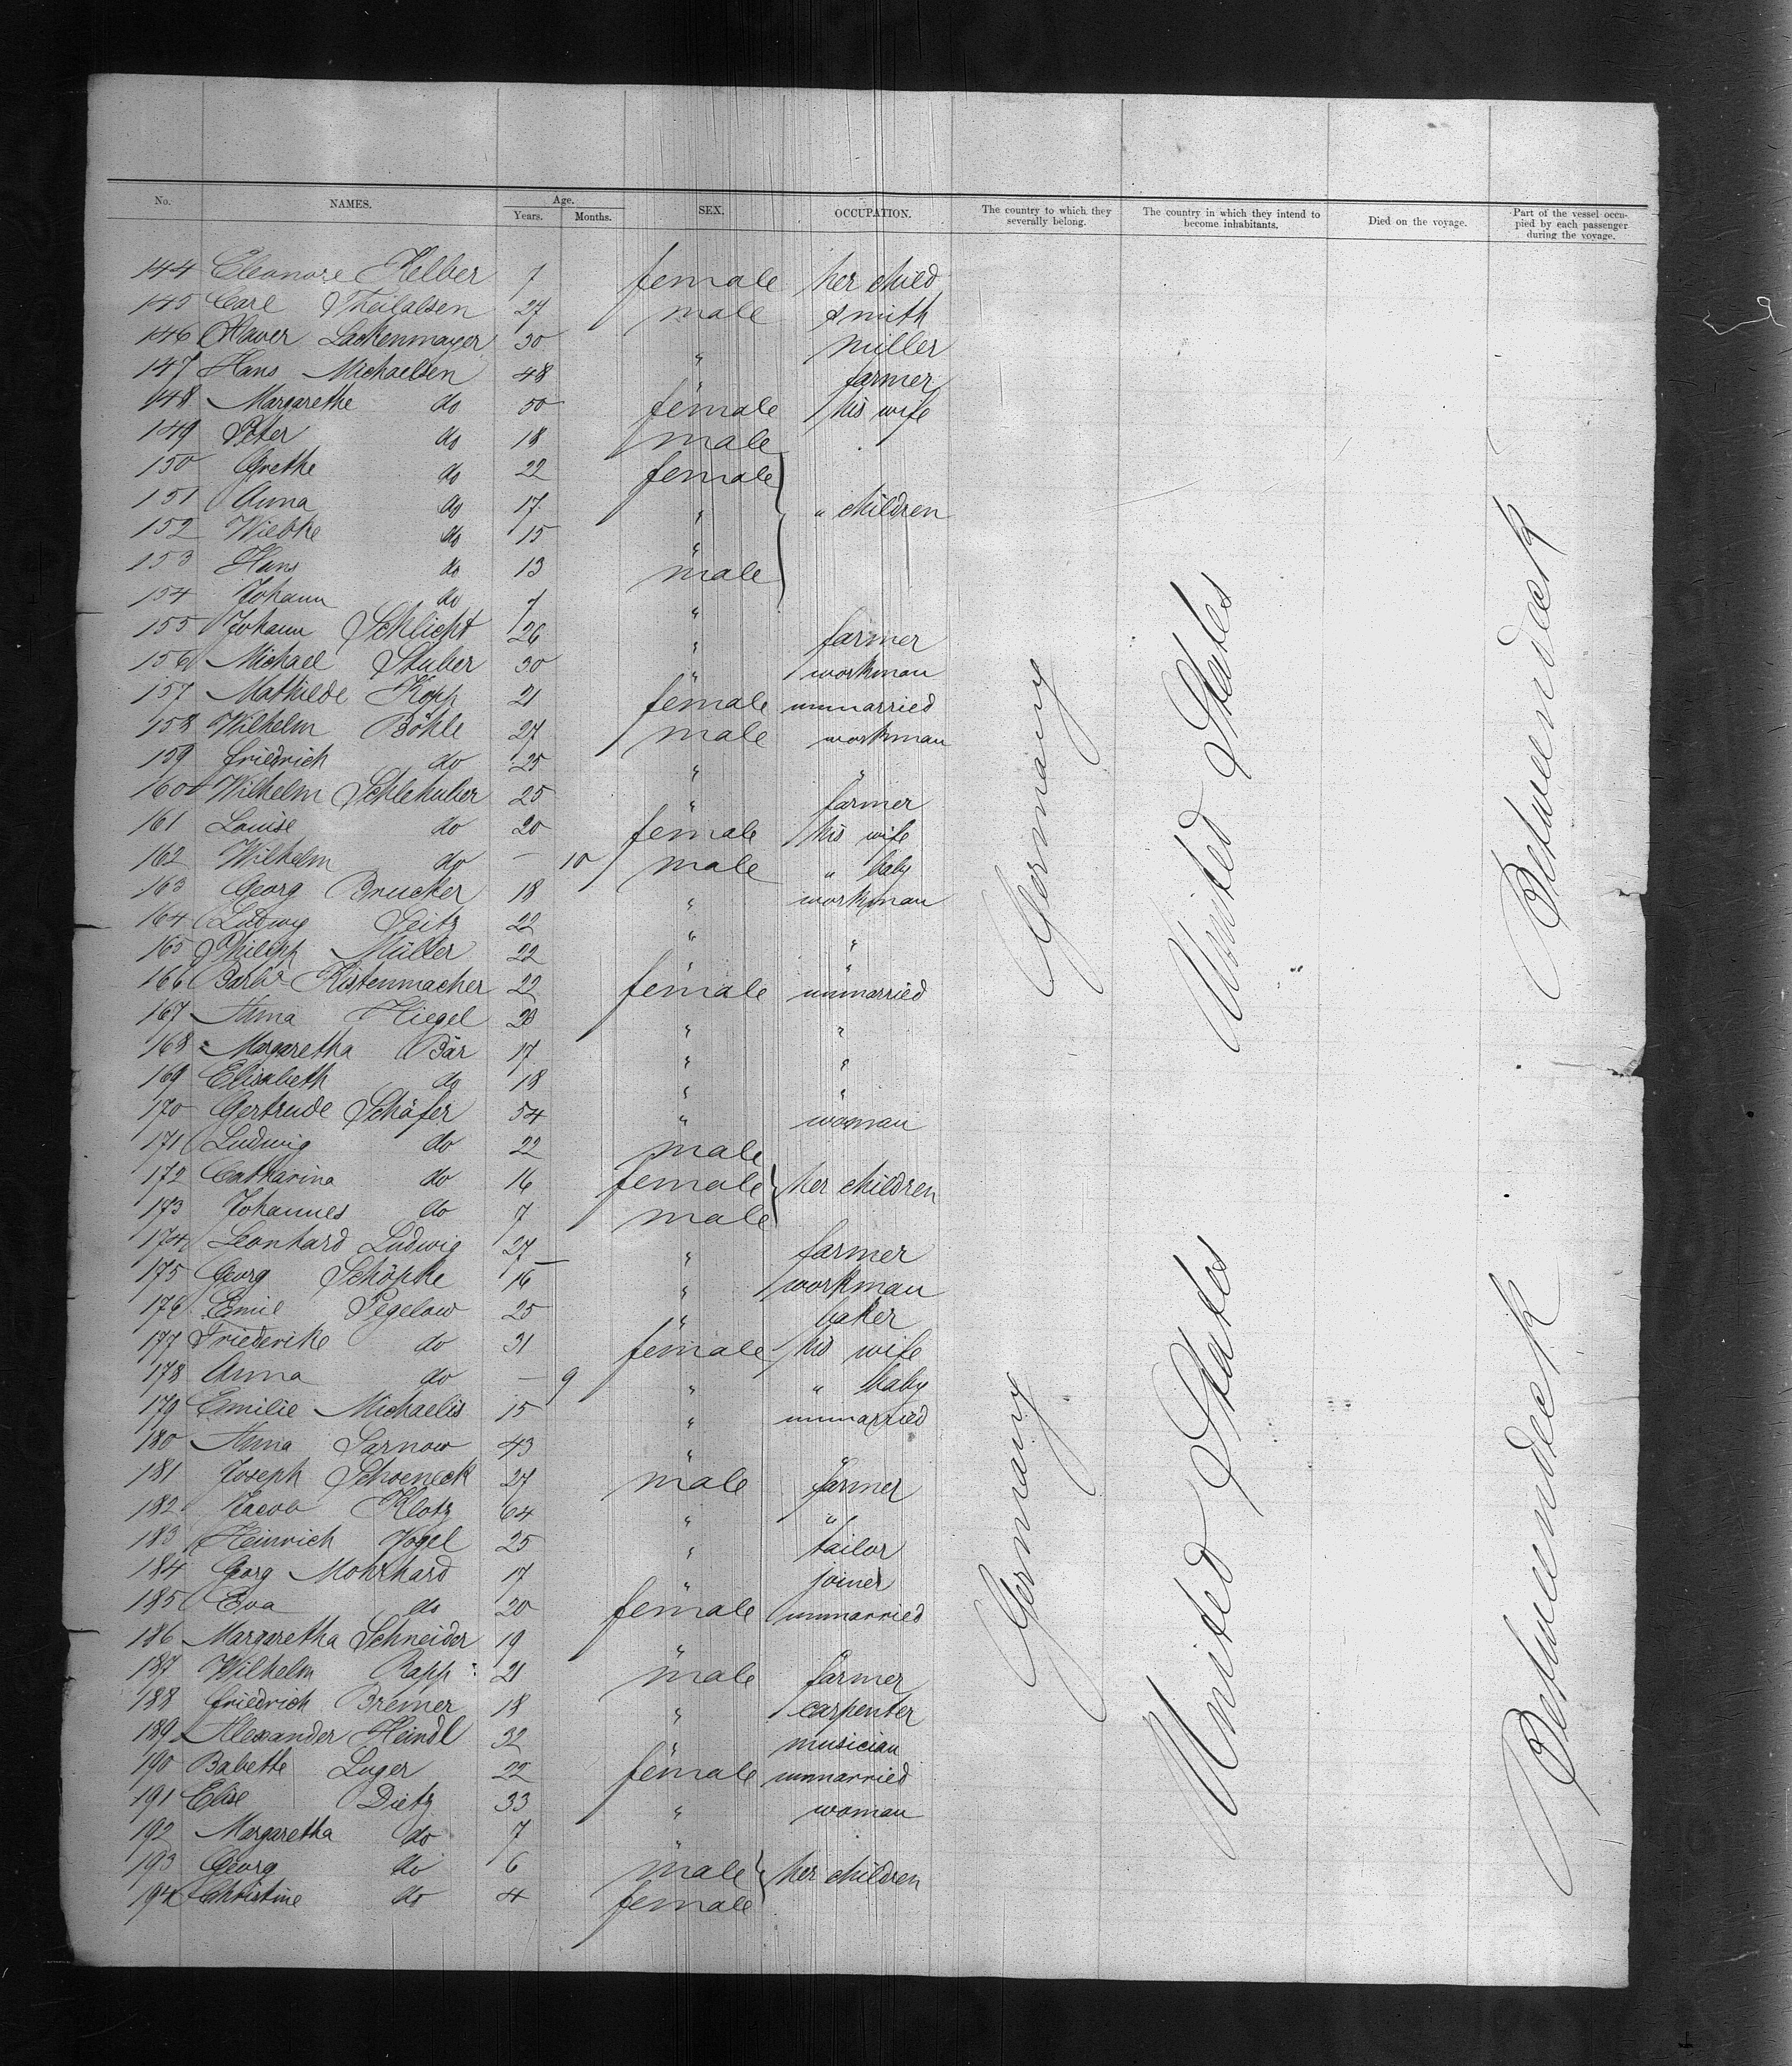 No. NAMES. Age. Years. Months. SEX. OCCUPATION. The country to which they severally belong. The country in which they intend to become inhabitants. Died on the voyage. Part of the vessel occupied by each passenger during the voyage.
144 Eleonore Kelber 7 female her child
145 Carl 27 male smith
146 Xaver Lackenmayer 30 " miller
147 Hans Michaelsen 48 " farmer
148 Margarethe do 50 female his wife
149 Peter do 18 male
150 Grethe do 22 female
151 Anna do 17 " " children
152 Wiebke do 15 "
153 Hans do 13 male
154 Johann do 7 "
155 Johann Schlicht 26 " farmer
156 Michael Stuber 30 " workman
157 Mathilde Kopp 21 female unmarried
158 Wilhelm Böhle 27 male workman
159 Friedrich do 25 " "
160 Wilhelm Schlehuber 25 " farmer
161 Louise do 20 female his wife
162 Wilhelm do — 10 male " baby
163 Georg Brucker 18 " workman
164 Ludwig Seitz 22 " "
165 Philipp Müller 22 " "
166 Barba Kistenmacher 22 female unmarried
167 Anna Hiegel 23 " "
168 Margaretha Bär 17 " "
169 Elisabeth do 18 " "
170 Gertrude Schäfer 54 " woman
171 Ludwig do 22 male
172 Catharina do 16 female her children
173 Johannes do 7 male
174 Leonhard Ludwig 27 " farmer
175 Georg Schöpke 16 " workman
176 Emil Pegelow 25 " baker
177 Friederike do 31 female his wife
178 Anna do — 9 " " baby
179 Emilie Michaelis 15 " unmarried
180 Anna Sarnow 43 "
181 Joseph Schoeneck 27 male farmer
182 Jacob Klotz 64 " "
183 Heinrich Vogel 25 " tailor
184 Georg Mohrhard 17 " joiner
185 Eva do 20 female unmarried
186 Margaretha Schneider 19 "
187 Wilhelm Rapp 21 male farmer
188 Friedrich Bremer 18 " carpenter
189 Alexander Heindl 32 " musician
190 Babette Luger 22 female unmarried
191 Elise Dietz 33 " woman
192 Margaretha do 7 "
193 Georg do 6 male her children
194 Christine do 4 female
Germany
United States
Betweendeck
Germany
United States
Betweendeck